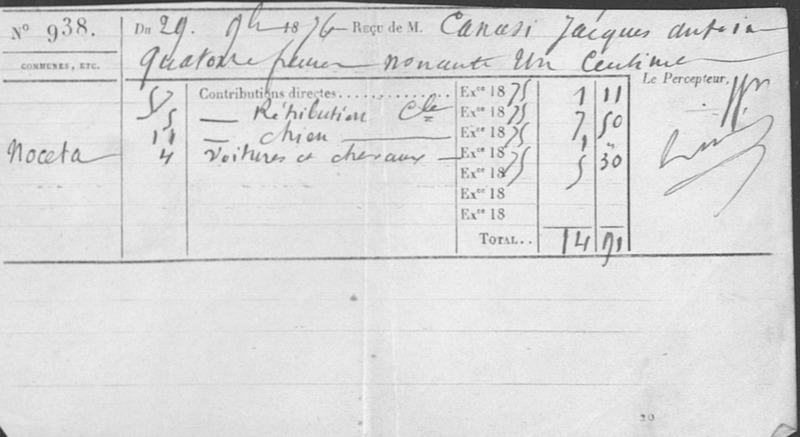 N° 938. Du 29. 9bre 1876 Reçu de M. Canasi Jacques antoin
COMMUNES, ETC. quatorze francs nonante un Centimes
Le Percepteur,
57 Contributions directes............ Exce 1875 1 11
5 — Rétribution Cle Exce 1875 7 50
11 — chien — Exce 1875 1 "
Noceta 4 voitures et chevaux — Exce 1875 5 30
Exce 1875
Exce 18
Exce 18
TOTAL.. 14 91
20